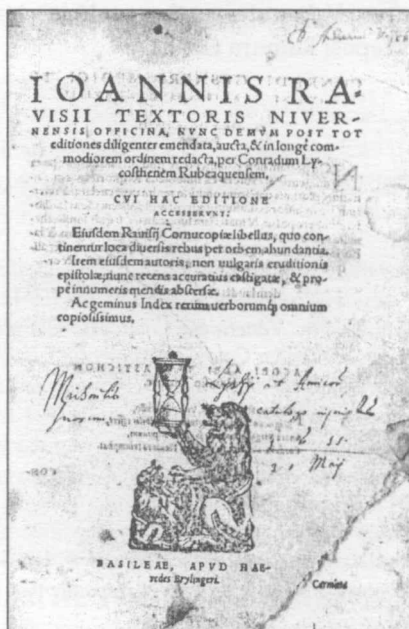 IOANNIS RA-
VISII TEXTORIS NIVER-
NENSIS, OFFICINA, NVNC DEMVM POST TOT
editiones diligenter emendata, aucta, & in longè com-
modiorem ordinem redacta, per Conradum Ly-
costhenem Rubeaquensem.
CVI HAC EDITIONE
ACCESSERVNT:
Eiusdem Rauisij Cornucopiæ libellus, quo con-
tinentur loca diuersis rebus per orbem abundantia.
Item eiusdem autoris, non uulgaris eruditionis
epistolæ, nunc recens accuratius castigatæ, & pro
pè innumeris mendis abstersæ.
Ac geminus Index rerum uerborumq; omnium
copiosissimus.
catalogo
Maij
BASILEAE, APVD HAE-
redes Brylingeri.